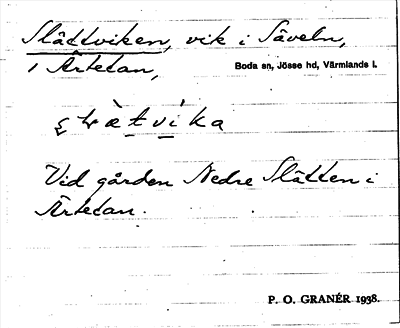 Slättviken, vik i Säveln,
i Ärtetan,
Boda sn, Jösse hd, Värmlands l.
Vid gården Nedre Slätten i
Ärtetan.
P. O. GRANÉR 1938.